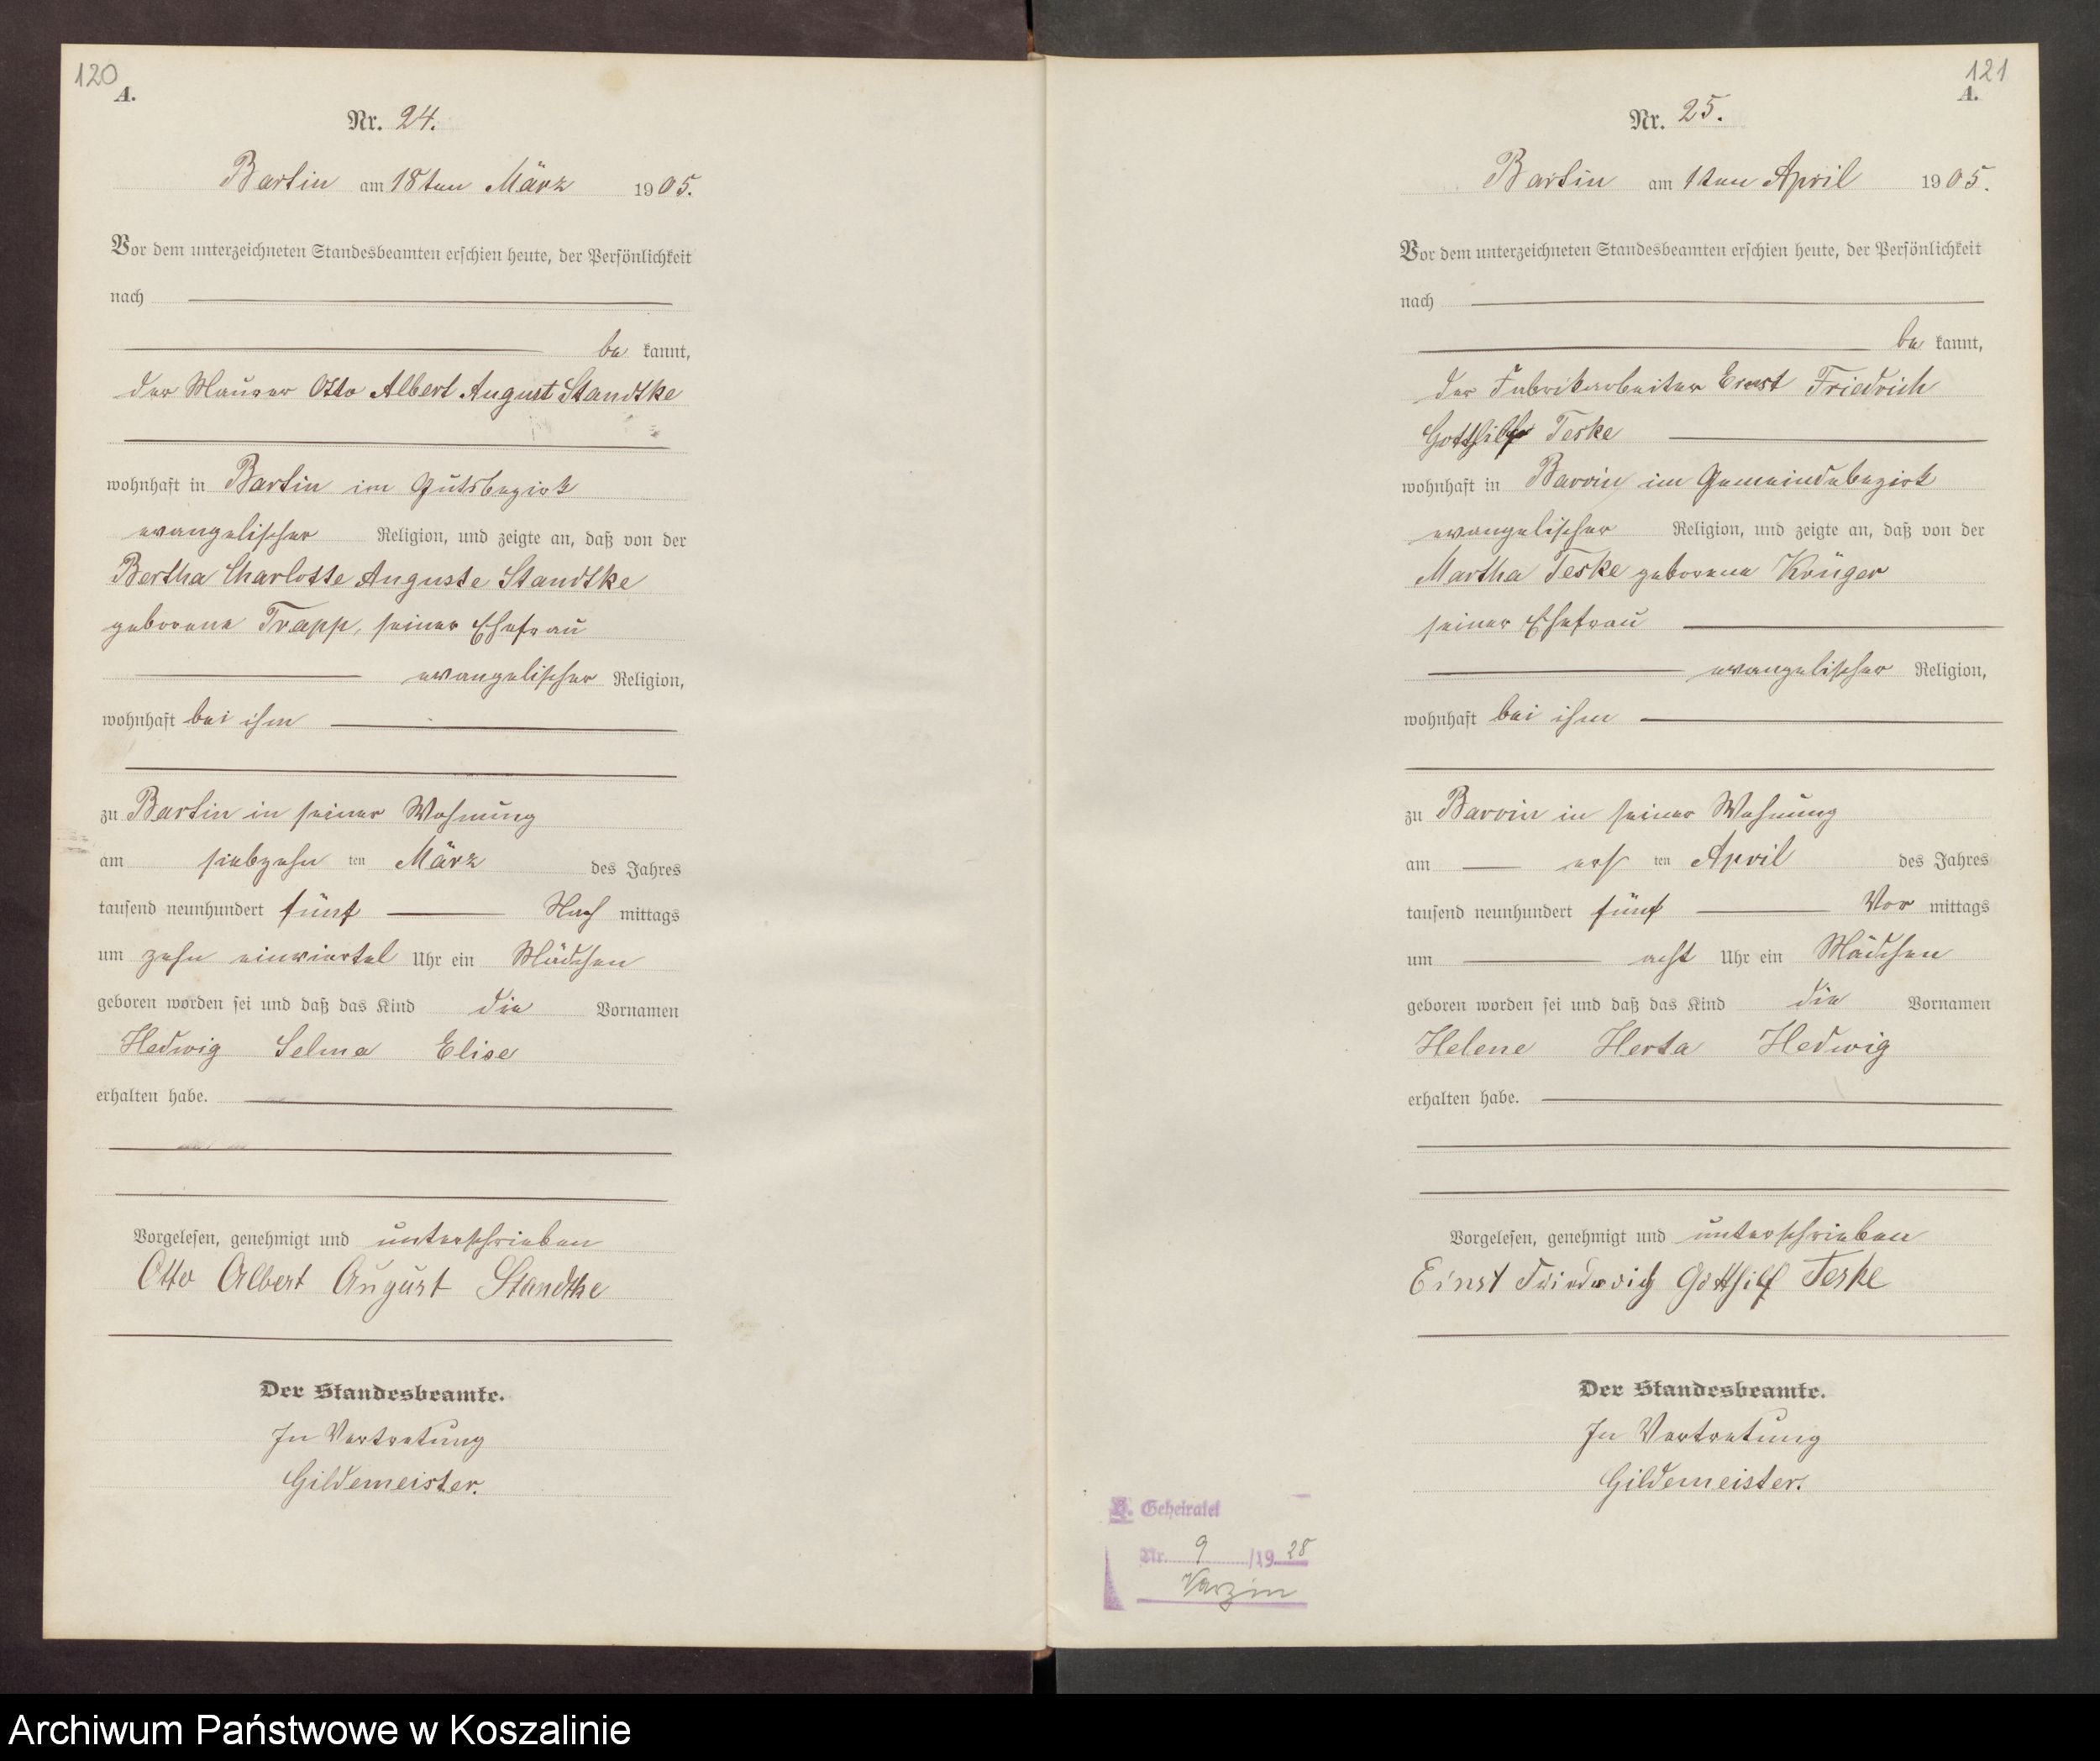 120
A.
Nr. 24.
Bartin am 18ten März 1905.
Vor dem unterzeichneten Standesbeamten erschien heute, der Persönlichkeit
nach
be kannt,
der Maurer Otto Albert August Standtke
wohnhaft in Bartin im Gutsbezirk
evangelischer Religion, und zeigte an, daß von der
Bertha Charlotte Auguste Standtke
geborene Trapp, seiner Ehefrau
evangelischer Religion,
wohnhaft bei ihm
zu Bartin in seiner Wohnung
am siebzehn ten März des Jahres
tausend neunhundert fünf Nach mittags
um zehn einviertel Uhr ein Mädchen
geboren worden sei und daß das Kind die Vornamen
Hedwig Selma Elise
erhalten habe.
Vorgelesen, genehmigt und unterschrieben
Otto Albert August Standtke
Der Standesbeamte.
In Vertretung
Gildemeister.
121
A.
Nr. 25.
Bartin am 1ten April 1905.
Vor dem unterzeichneten Standesbeamten erschien heute, der Persönlichkeit
nach
be kannt,
der Fabrikarbeiter Ernst Friedrich
Gotthilf Teske
wohnhaft in Barvin im Gemeindebezirk
evangelischer Religion, und zeigte an, daß von der
Martha Teske geborene Krüger
seiner Ehefrau
evangelischer Religion,
wohnhaft bei ihm
zu Barvin in seiner Wohnung
am ers ten April des Jahres
tausend neunhundert fünf Vor mittags
um acht Uhr ein Mädchen
geboren worden sei und daß das Kind die Vornamen
Helene Herta Hedwig
erhalten habe.
Vorgelesen, genehmigt und unterschrieben
Ernst Friederich Gotthilf Teske
Der Standesbeamte.
In Vertretung
Gildemeister.
Geheiratet
Nr. 9 /1928
Varzin
Archiwum Państwowe w Koszalinie